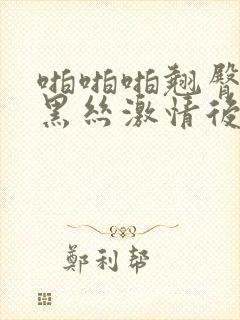 啪啪啪翘臀
黑丝激情後
鄭利幇